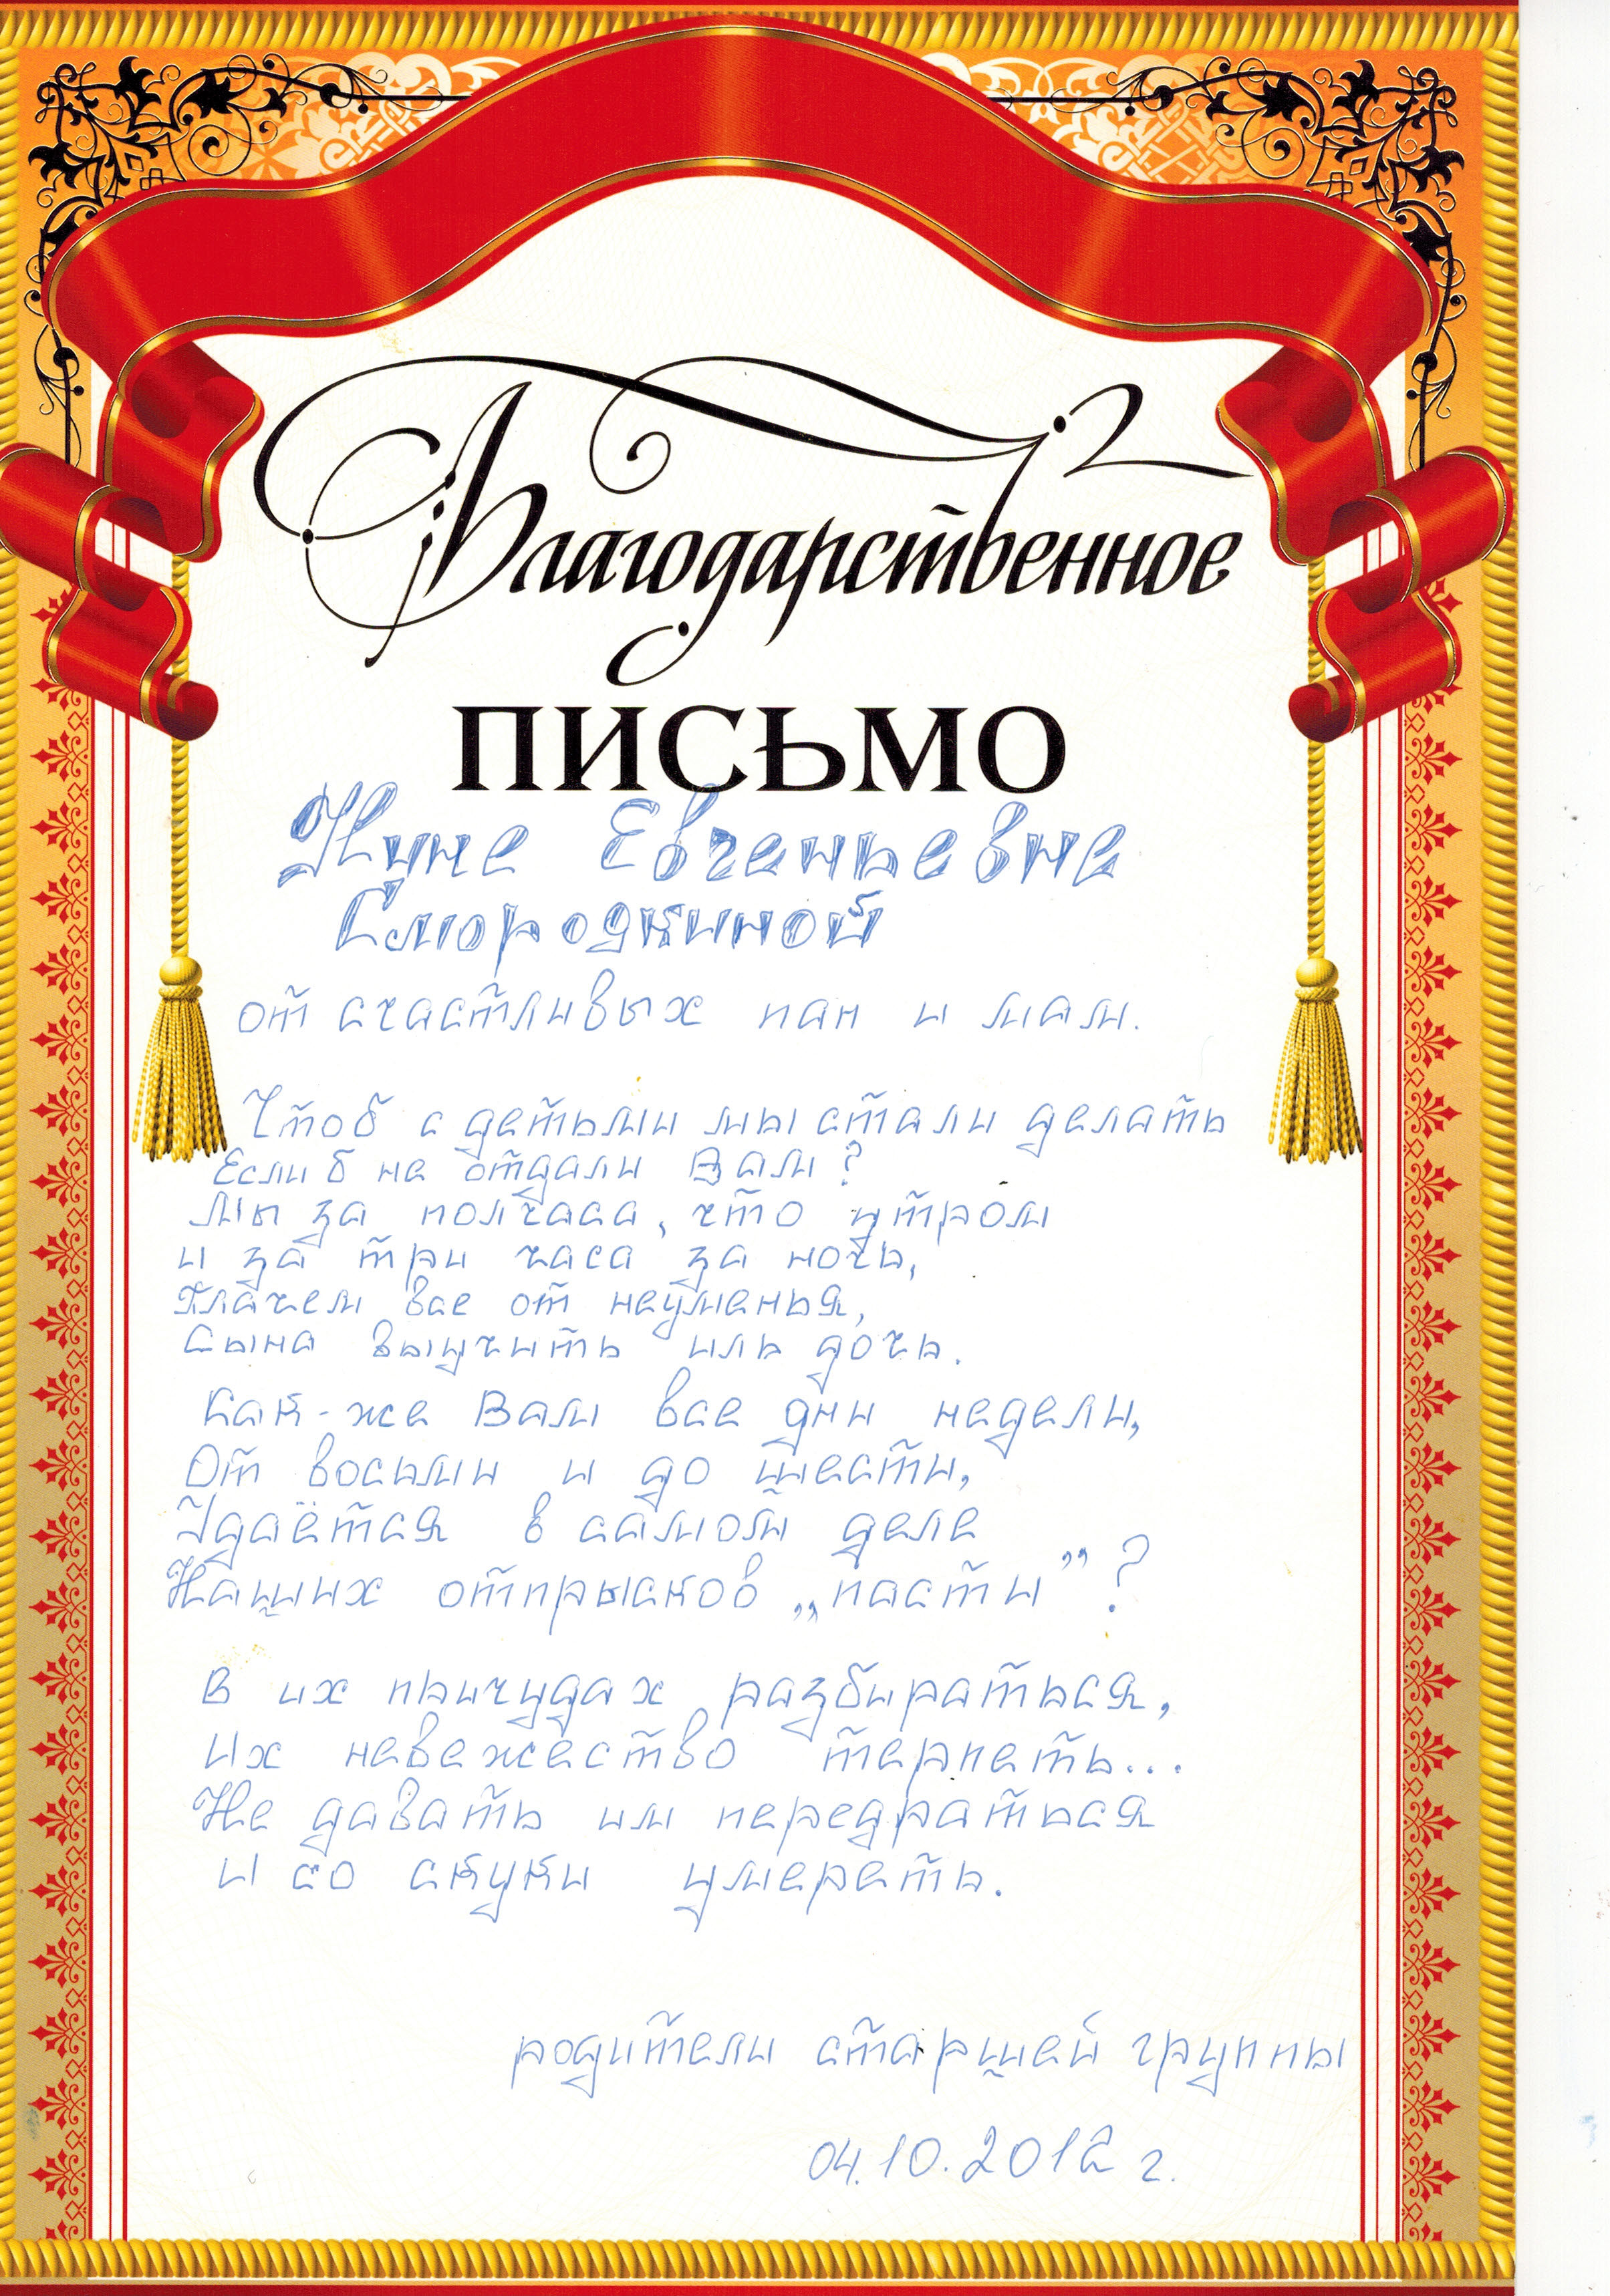 Благодарственное
ПИСЬМО
Нине Евгеньевне
Смородкиной
от счастливых пап и мам.
Чтоб с детьми мы стали делать
Если б не отдали Вам?
Мы за полчаса, что утром
и за три часа за ночь,
Плачем все от неуменья,
Сына выучить иль дочь.
Как-же Вам все дни недели,
От восьми и до шести,
Удаётся в самом деле
Наших отпрысков „пасти”?
В их причудах разбираться,
Их невежество терпеть...
Не давать им передраться
И со скуки умереть.
родители старшей группы
04.10.2012 г.